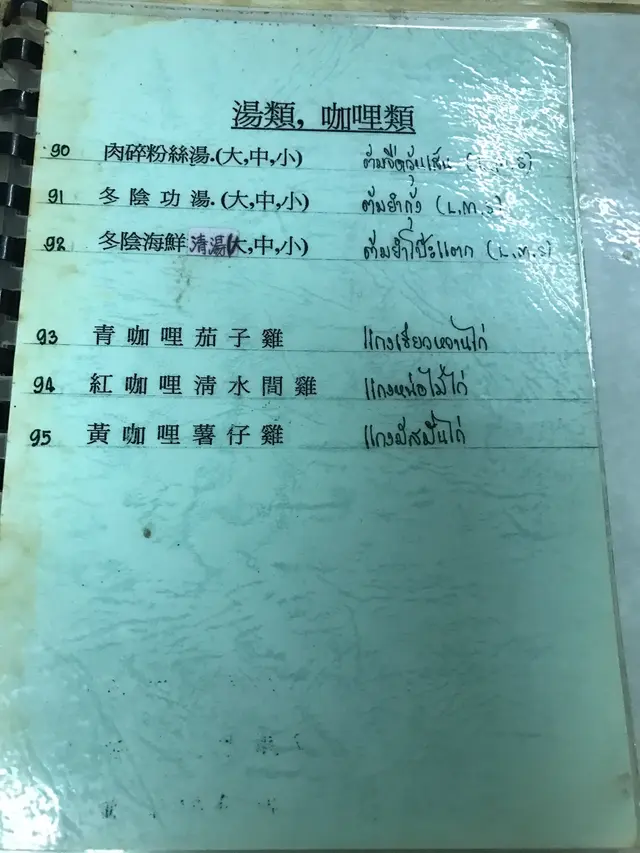 湯類, 咖哩類
90 肉碎粉絲湯.(大,中,小) ต้มจืดวุ้นเส้น (L,M,S)
91 冬陰功湯.(大,中,小) ต้มยำกุ้ง (L,M,S)
92 冬陰海鮮清湯(大,中,小) ต้มยำโป๊ะแตก (L,M,S)
93 青咖哩茄子雞 แกงเขียวหวานไก่
94 紅咖哩清水間雞 แกงหน่อไม้ไก่
95 黃咖哩薯仔雞 แกงมัสมั่นไก่